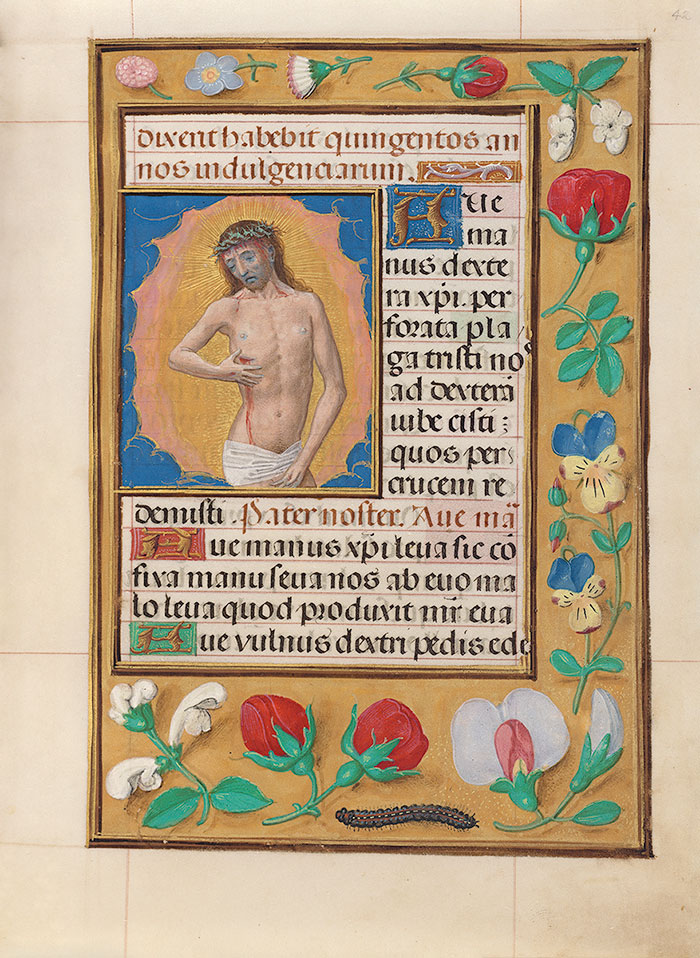 dixerit habebit quingentos an
nos indulgenciarum.
Aue
ma
nus dexte
ra xp̄i. per
forata pla
ga tristi nos
ad dexterā
iube cisti ;
quos per
crucem re
demisti. Pater noster. Aue mā
Aue manus xp̄i leua sic cō
fixa manu seua nos ab euo ma
lo leua quod produxit mr̄ eua
Aue vulnus dextri pedis ede